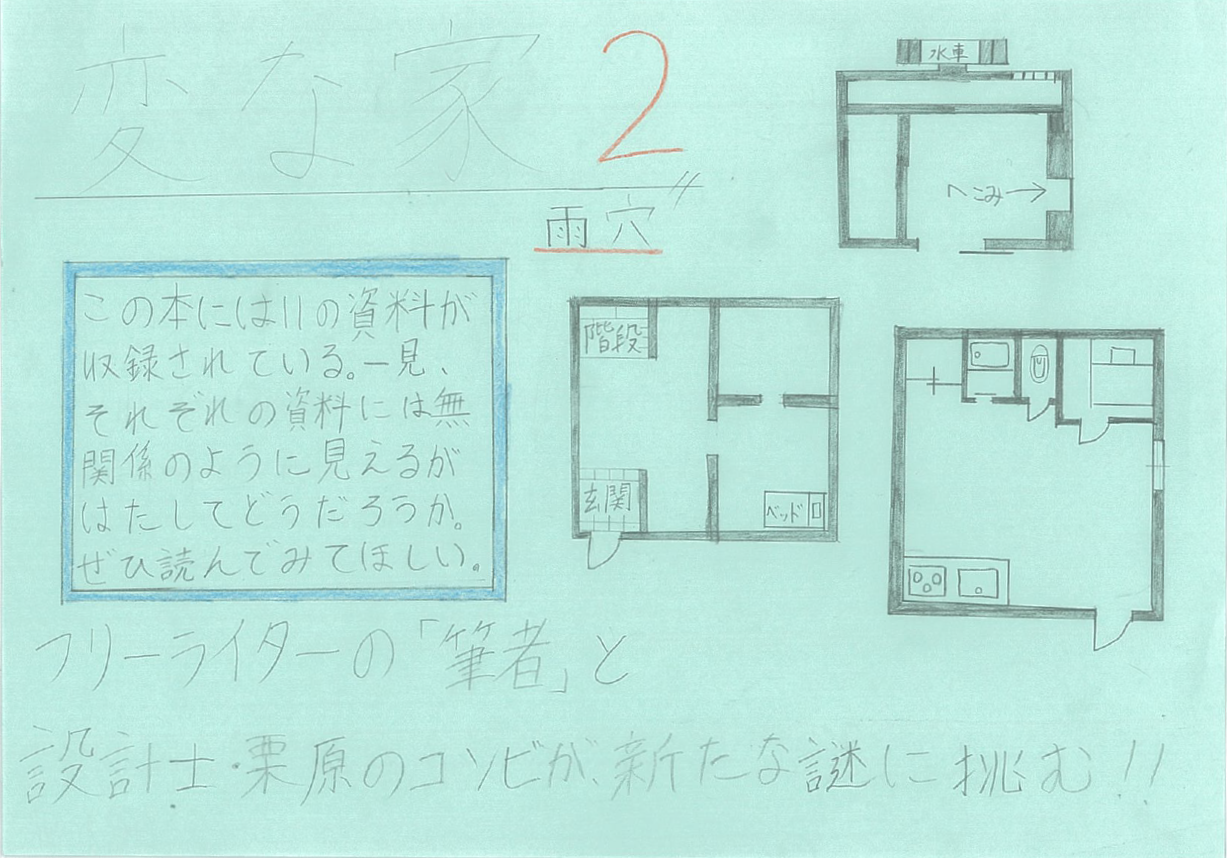 変な家2
雨穴
水車
へこみ→
この本には11の資料が
収録されている。一見、
それぞれの資料には無
関係のように見えるが
はたしてどうだろうか。
ぜひ読んでみてほしい。
階段
玄関
ベッド
フリーライターの「筆者」と
設計士・栗原のコンビが、新たな謎に挑む!!